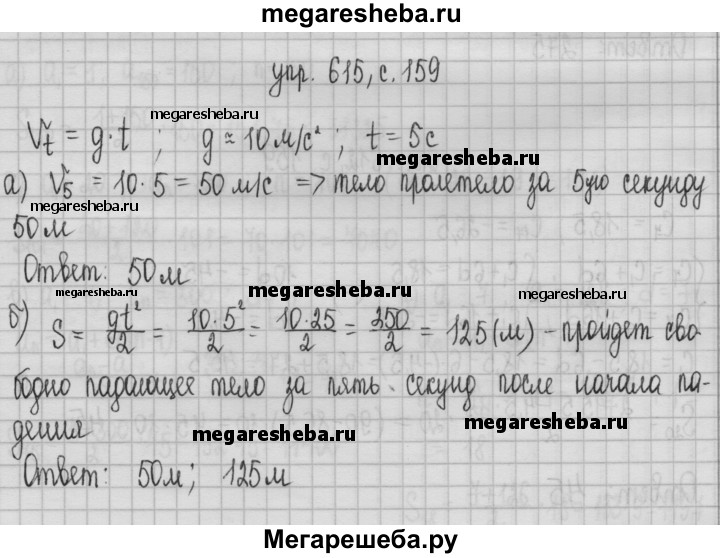 megaresheba.ru
упр. 615, с. 159
megaresheba.ru
Vt = g·t ; g ≈ 10 м/с² ; t = 5с
megaresheba.ru
а) V5 = 10·5 = 50 м/с => тело пролетело за 5ую секунду
megaresheba.ru
50 м
Ответ: 50 м
megaresheba.ru
megaresheba.ru
б) S = gt²/2 = 10·5²/2 = 10·25/2 = 250/2 = 125 (м) - пройдет сво-
бодно падающее тело за пять секунд после начала па-
megaresheba.ru
дения
megaresheba.ru
Ответ: 50 м; 125 м
Мегарешеба.ру